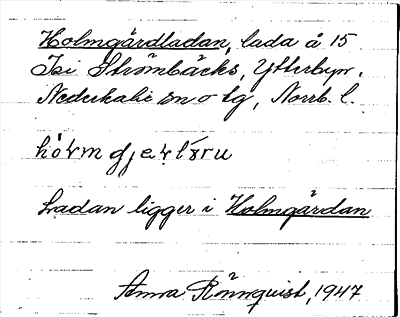 Holmgårdladan, lada å 15
Isi Strömbäcks, Ytterbyn,
Nederkalix sn o tg, Norrb. l.
Ladan ligger i Holmgårdan
Anna Rönnquist, 1947